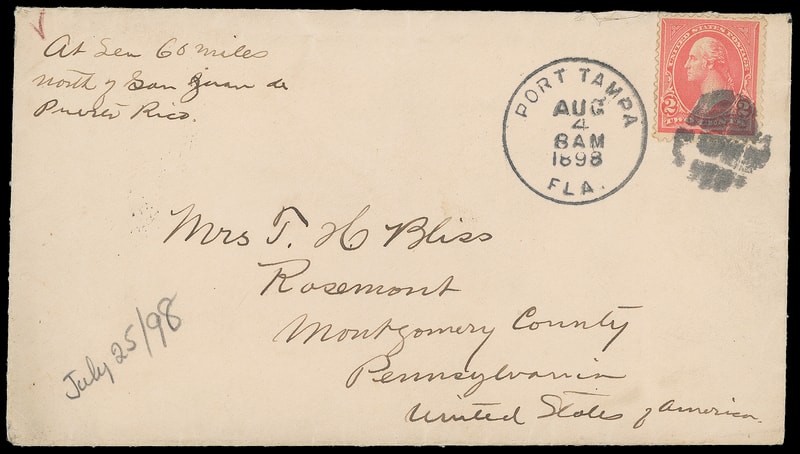 At Sea 60 miles
north of San Juan de
Puerto Rico.
PORT TAMPA
AUG
4
8AM
1898
FLA.
UNITED STATES POSTAGE
2
Mrs T. H. Bliss
Rosemont
Montgomery County
Pennsylvania
United States of America.
July 25/98